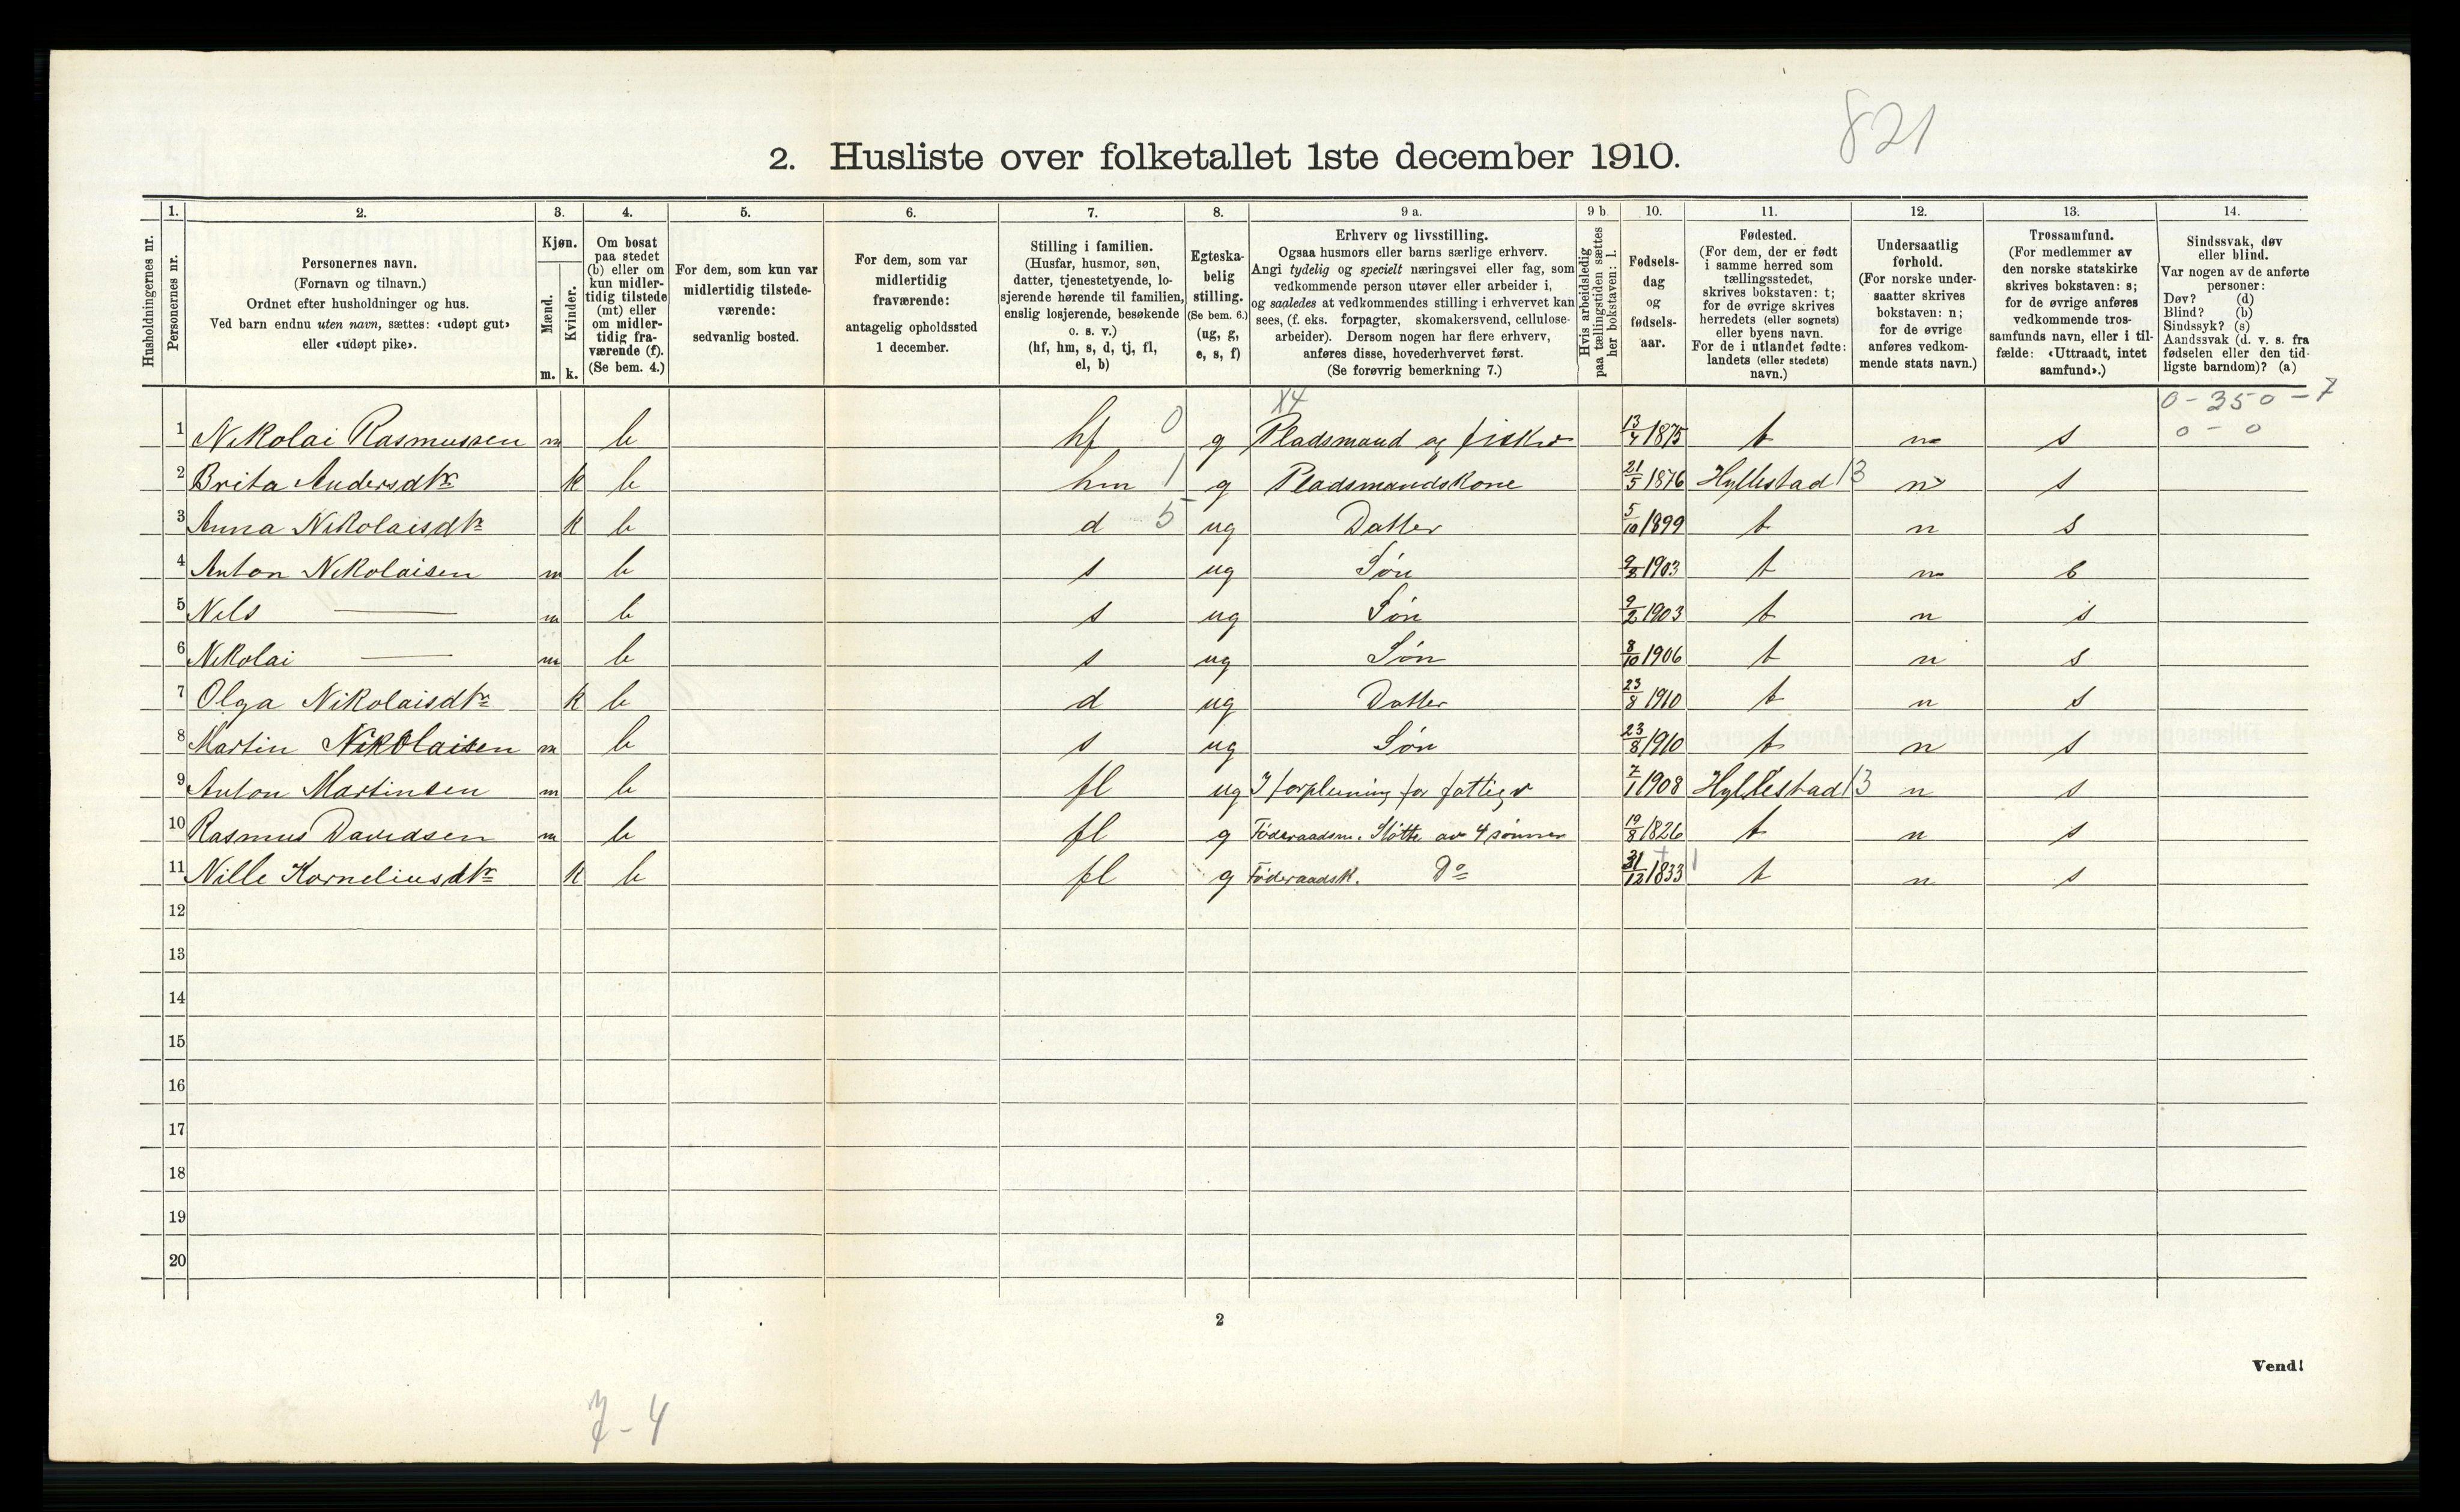 821
2. Husliste over folketallet 1ste december 1910.
1. 2. 3. 4. 5. 6. 7. 8. 9 a. 9 b. 10. 11. 12. 13. 14.
Husholdningernes nr.
Personernes nr.
Personernes navn.
(Fornavn og tilnavn.)
Ordnet efter husholdninger og hus.
Ved barn endnu uten navn, sættes: «udøpt gut»
eller «udøpt pike».
Kjøn.
Mænd.
Kvinder.
m. k.
Om bosat
paa stedet
(b) eller om
kun midler-
tidig tilstede
(mt) eller
om midler-
tidig fra-
værende (f).
(Se bem. 4.)
For dem, som kun var
midlertidig tilstede-
værende:
sedvanlig bosted.
For dem, som var
midlertidig
fraværende:
antagelig opholdssted
1 december.
Stilling i familien.
(Husfar, husmor, søn,
datter, tjenestetyende, lo-
sjerende hørende til familien,
enslig losjerende, besøkende
o. s. v.)
(hf, hm, s, d, tj, fl,
el, b)
Egteska-
belig
stilling.
(Se bem. 6.)
(ug, g,
e, s, f)
Erhverv og livsstilling.
Ogsaa husmors eller barns særlige erhverv.
Angi tydelig og specielt næringsvei eller fag, som
vedkommende person utøver eller arbeider i,
og saaledes at vedkommendes stilling i erhvervet kan
sees, (f. eks. forpagter, skomakersvend, cellulose-
arbeider). Dersom nogen har flere erhverv,
anføres disse, hovederhvervet først.
(Se forøvrig bemerkning 7.)
Hvis arbeidsledig
paa tællingstiden sættes
her bokstaven: l.
Fødsels-
dag
og
fødsels-
aar.
Fødested.
(For dem, der er født
i samme herred som
tællingsstedet,
skrives bokstaven: t;
for de øvrige skrives
herredets (eller sognets)
eller byens navn.
For de i utlandet fødte:
landets (eller stedets)
navn.)
Undersaatlig
forhold.
(For norske under-
saatter skrives
bokstaven: n;
for de øvrige
anføres vedkom-
mende stats navn.)
Trossamfund.
(For medlemmer av
den norske statskirke
skrives bokstaven: s;
for de øvrige anføres
vedkommende tros-
samfunds navn, eller i til-
fælde: «Uttraadt, intet
samfund».)
Sindssvak, døv
eller blind.
Var nogen av de anførte
personer:
Døv? (d)
Blind? (b)
Sindssyk? (s)
Aandssvak (d. v. s. fra
fødselen eller den tid-
ligste barndom)? (a)
X4 0-350-7
1 Nikolai Rasmussen m b hf 0 g Pladsmand og fisker 13/4 1875 t n s 0-0
2 Brita Andersdtr k b hm 1 g Pladsmandskone 21/5 1876 Hyllestad 13 n s
3 Anna Nikolaisdtr k b d 5 ug Datter 5/10 1899 t n s
4 Anton Nikolaisen m b s ug Søn 9/2 1903 t n s
5 Nils — m b s ug Søn 9/2 1903 t n s
6 Nikolai — m b s ug Søn 8/10 1906 t n s
7 Olga Nikolaisdtr k b d ug Datter 23/8 1910 t n s
8 Martin Nikolaisen m b s ug Søn 23/8 1910 t n s
9 Anton Martinsen m b fl ug I forpleining for fattigv 7/1 1908 Hyllestad 13 n s
10 Rasmus Davidsen m b fl g Føderaadsm. Støtte av 4 sønner 19/8 1826 t n s
11 Nille Korneliusdtr k b fl g Føderaadsk. Do 31/12 1833 t n s
12
13
14
15
16
17
18
19
20
2
Vend!
7-4